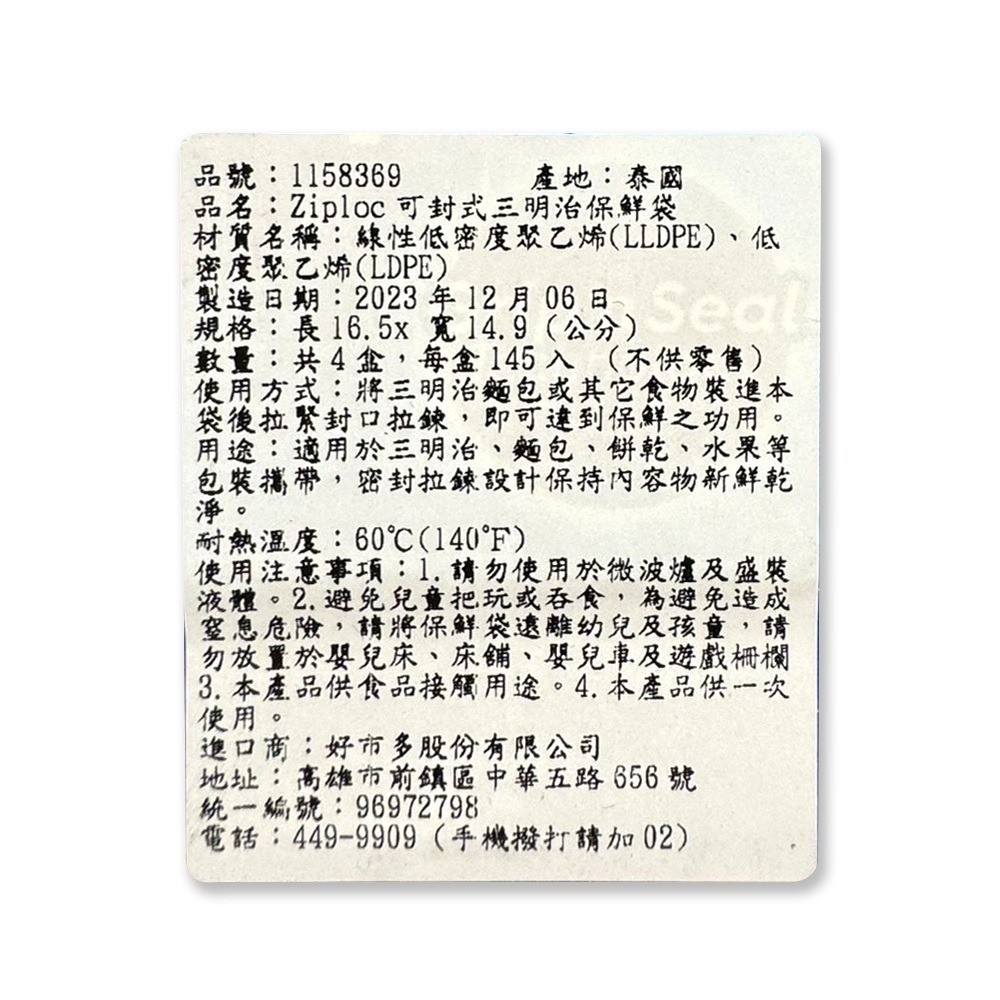 品號：1158369 產地：泰國
品名：Ziploc 可封式三明治保鮮袋
材質名稱：線性低密度聚乙烯(LLDPE)、低
密度聚乙烯(LDPE)
製造日期：2023 年 12 月 06 日
規格：長 16.5x 寬 14.9（公分）
數量：共 4 盒，每盒 145 入 （不供零售）
使用方式：將三明治麵包或其它食物裝進本
袋後拉緊封口拉鍊，即可達到保鮮之功用。
用途：適用於三明治、麵包、餅乾、水果等
包裝攜帶，密封拉鍊設計保持內容物新鮮乾
淨。
耐熱溫度：60℃(140℉)
使用注意事項：1.請勿使用於微波爐及盛裝
液體。2.避免兒童把玩或吞食，為避免造成
窒息危險，請將保鮮袋遠離幼兒及孩童，請
勿放置於嬰兒床、床舖、嬰兒車及遊戲柵欄
3.本產品供食品接觸用途。4.本產品供一次
使用。
進口商：好市多股份有限公司
地址：高雄市前鎮區中華五路 656 號
統一編號：96972798
電話：449-9909（手機撥打請加 02）
Seal